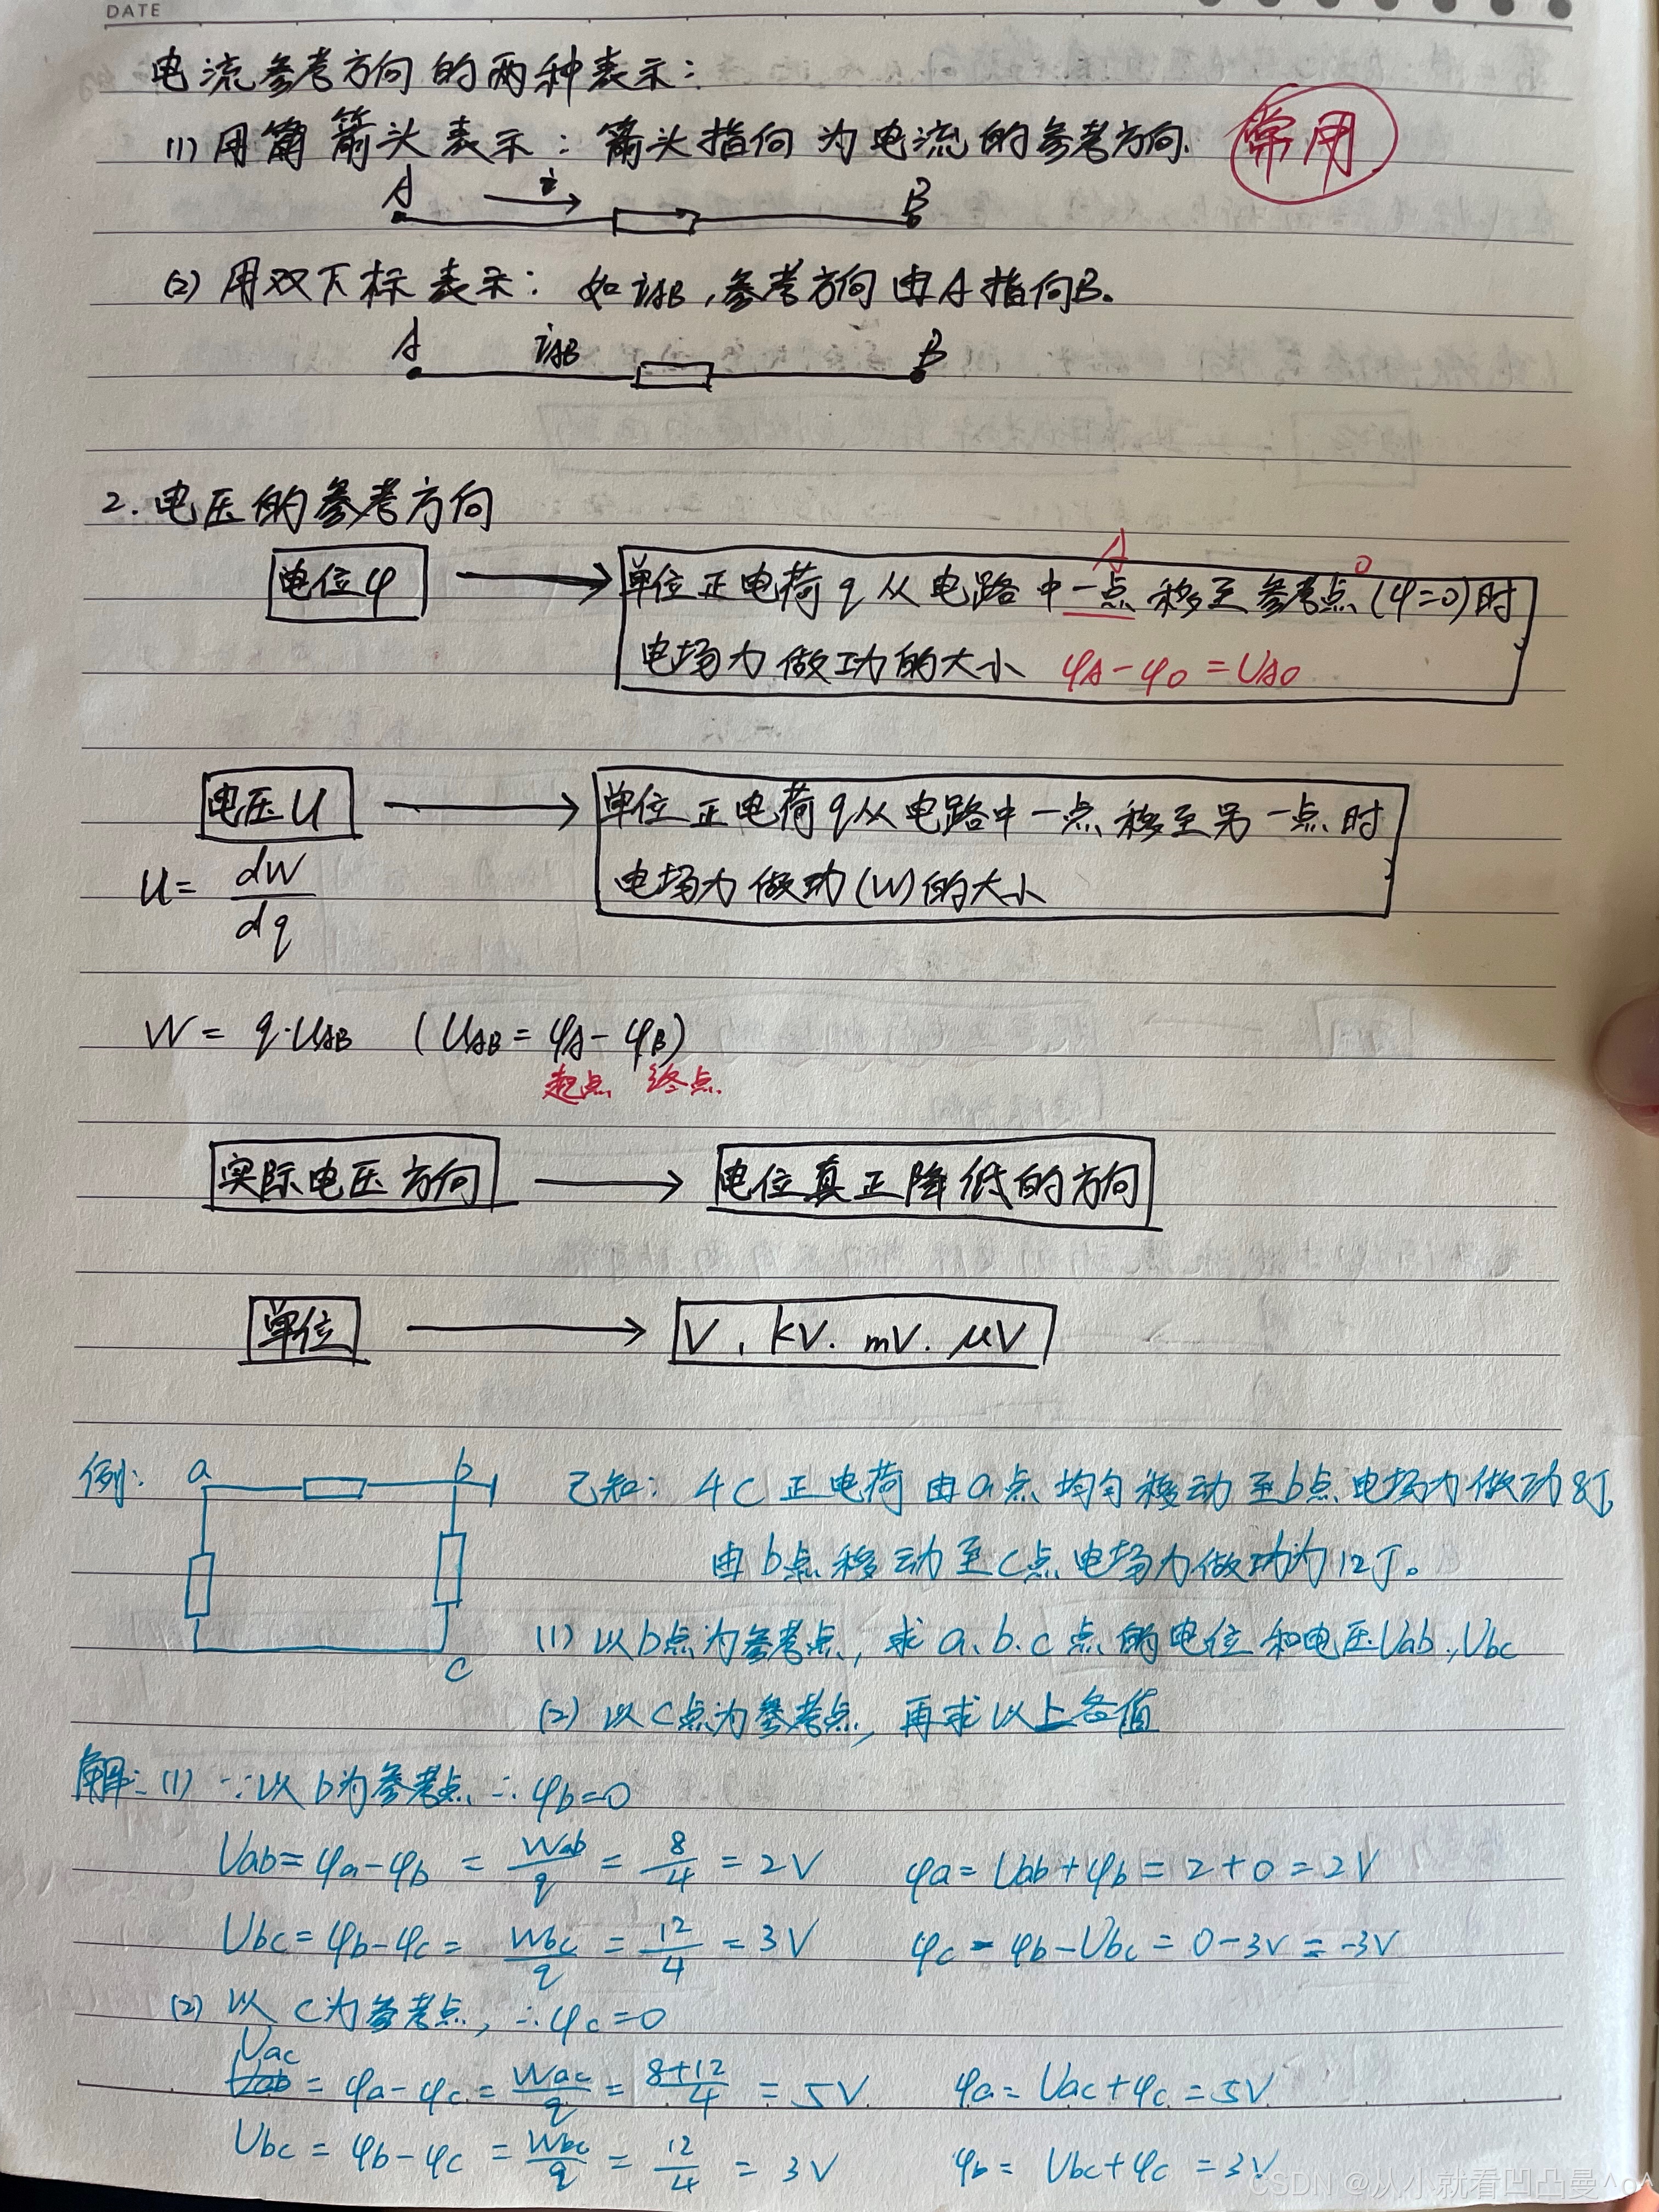 DATE
电流参考方向的两种表示：
(1) 用箭头表示：箭头指向为电流的参考方向. 常用
A i B
(2) 用双下标表示：如iAB，参考方向由A指向B。
A iAB B
2. 电压的参考方向
A O
电位φ 单位正电荷q从电路中一点移至参考点(φ=0)时
电场力做功的大小 φA-φO=UAO
电压U 单位正电荷q从电路中一点移至另一点时
电场力做功(W)的大小
U= dW/dq
W= q·UAB (UAB= φA- φB)
起点 终点
实际电压方向 电位真正降低的方向
单位 V、kV. mV. μV
例: a b 已知：4C正电荷由a点均匀移动至b点电场力做功8J,
由b点移动至c点电场力做功为12J。
(1) 以b点为参考点, 求a、b、c点的电位和电压Uab、Ubc
c
(2) 以C点为参考点, 再求以上各值
解: (1) ∵以b为参考点 ∴φb=0
Uab= φa-φb = Wab/q = 8/4 = 2V φa= Uab+φb = 2+0 = 2V
Ubc= φb-φc = Wbc/q = 12/4 = 3V φc = φb-Ubc = 0-3V = -3V
(2) 以C为参考点, ∴φc=0
Uac = φa-φc = Wac/q = 8+12/4 = 5V φa= Uac+φc = 5V
Ubc = φb-φc = Wbc/q = 12/4 = 3V φb= Ubc+φc = 3V
CSDN @从小就看凹凸曼^o^